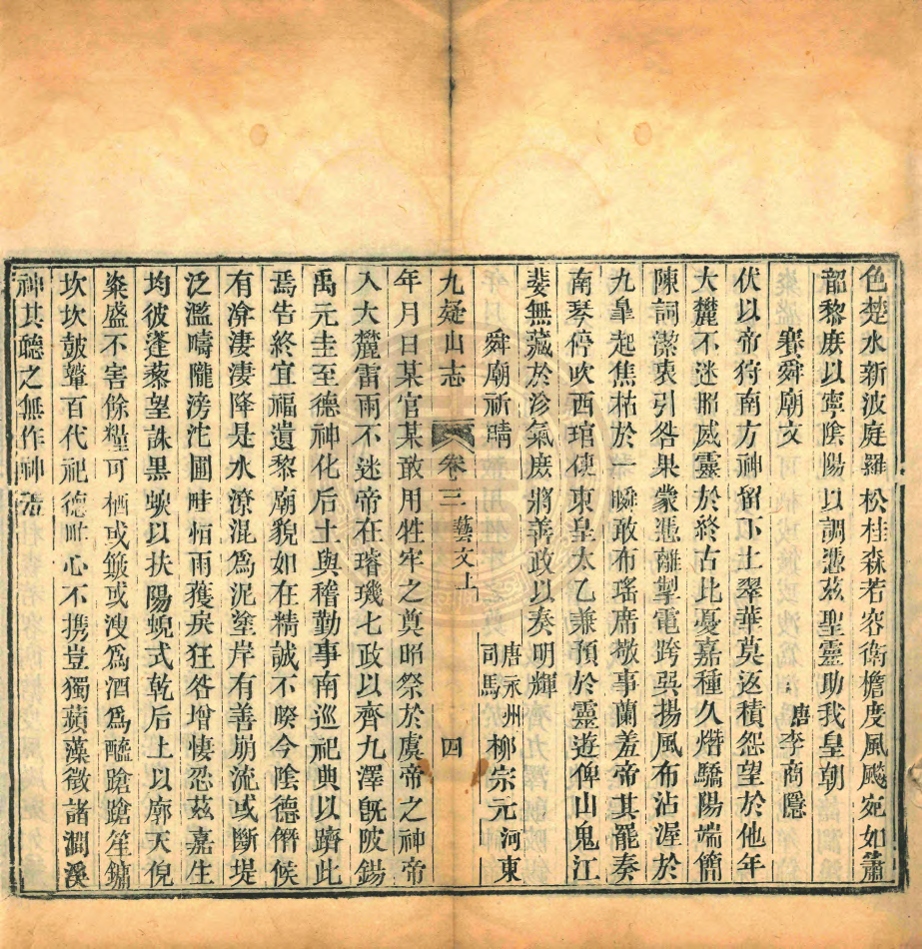 色楚水新波庭羅松桂森若容衛檐度風颸宛如蕭
韶黎庶以寧陰陽以調憑茲聖靈助我皇朝
賽舜廟文 唐李商隱
伏以帝狩南方神留下土翠華莫返積怨望於他年
大麓不迷昭威靈於終古比憂嘉種久熸驕陽端簡
陳詞潔衷引咎果蒙憑離掣電跨巽揚風布沾渥於
九皐起焦枯於一瞬敢布瑤席敬事蘭羞帝其罷奏
南琴停吹西琯使東皇太乙兼預於靈遊俾山鬼江
婓無藏於沴氣庶將善政以奏明輝
舜廟祈晴 唐永州司馬柳宗元河東
九疑山志 卷三 藝文上 四
年月日某官某敢用牲牢之奠昭祭於虞帝之神帝
入大麓雷雨不迷帝在璿璣七政以齊九澤旣陂錫
禹元圭至德神化后土與稽勤事南巡祀典以躋此
焉告終宜福遺黎廟貌如在精誠不暌今陰德僭候
有渰淒淒降是水潦混爲泥塗岸有善崩流或斷堤
泛濫疇隴滂沱圃畤恒雨獲戾狂咎增悽忍茲嘉生
均彼蓬藜望誅黑蜧以扶陽蜺式乾后土以廓天倪
粢盛不害餘糧可栖或簸或溲爲酒爲醯蹌蹌笙鏞
坎坎鼓鼙百代祀德䀲心不携豈獨蘋藻徵諸澗溪
神其聽之無作神